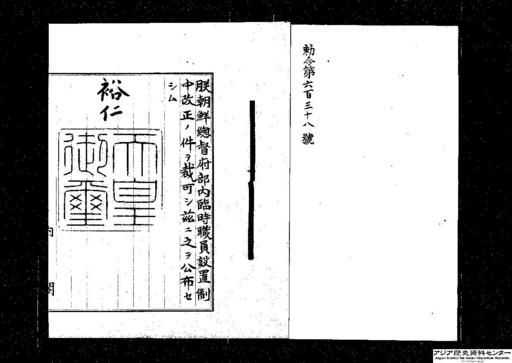 勅令第六百三十八號
朕朝鮮總督府部內臨時職員設置制
中改正ノ件ヲ裁可シ茲ニ之ヲ公布セ
シム
裕仁
天皇
御璽
內
閣
アジア歴史資料センター
Japan Center for Asian Historical Records